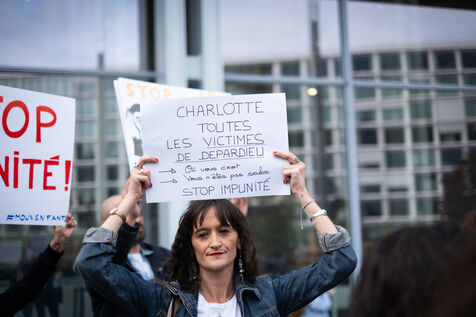 OP
NITÉ!
#MOUVENFANT
STO
CHARLOTTE
TOUTES
LES VICTIMES
DE DEPARDIEU
→ ON VOUS CROIT
→ VOUS N'ÊTES PAS SEULES
STOP IMPUNITÉ